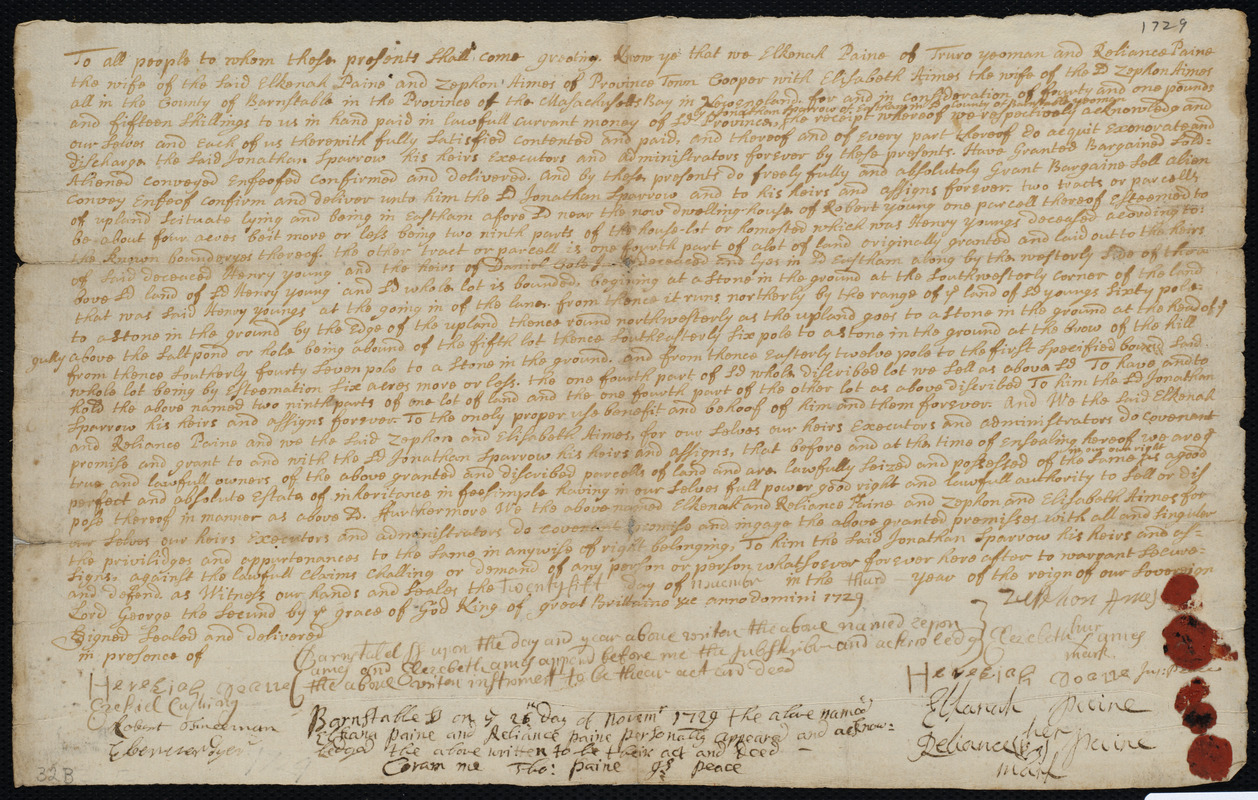 1729
To all people to whom these presents shall come greeting Know ye that we Elkenah Paine of Truro yeoman and Reliance Paine
the wife of the said Elkenah Paine and Zephon Aimes of Province Town Cooper with Elisabeth Aimes the wife of the sd Zephon Aimes
all in the County of Barnstable in the Province of the Masachusets Bay in Newengland for and in consideration of fourty and one pounds
and fifteen shillings to us in hand paid in lawfull currant money of sd Province, the receipt whereof we respectively acknowledge and
our selves and each of us therewith fully satisfied contented and paid, and thereof and of every part thereof do acquit Exonorate and
discharge the said Jonathan Sparrow his heirs Executors and administrators forever by these presents. Have Granted Bargained Sold=
Aliened conveyed Enfeofed confirmed and delivered. And by these presents do freely fully and absolutely grant Bargaine sell alien
Convey Enfeof confirm and deliver unto him the sd Jonathan Sparrow and to his heirs and assigns forever. two tracts or parcells
of upland scituate lying and being in Eastham afore sd near the now dwelling-house of Robert young one parcell thereof Esteemed to
be about four acres be it more or less being two ninth parts of the house-lot or homested which was Henry youngs deceased acording to
the known bounderyes thereof. the other tract or parcell is one fourth part of a lot of land originally granted and laid out to the heirs
of said deceaced Henry young and the heirs of Daniel deceaced and lyes in sd Eastham along by the westerly side of the a
bove sd land of sd Henry young and sd whole lot is bounded. begining at a Stone in the ground at the Southwesterly corner of the land
that was said Henry youngs at the going in of the lane. from thence it runs northerly by the range of ye land of sd youngs Sixty pole
to a Stone in the ground by the Edge of the upland thence round northwesterly as the upland goes to a Stone in the ground at the head of ye
gully above the salt pond or hole being a bound of the fifth lot thence Southeasterly six pole to a Stone in the ground at the brow of the hill
from thence Southerly fourty seven pole to a Stone in the ground. and from thence Easterly twelve pole to the first specified bound said
whole lot being by Esteemation Six acres more or less. the one fourth part of sd whole discribed lot we sell as above sd To have and to
hold the above named two ninth parts of one lot of land and the one fourth part of the other lot as above discribed To him the sd Jonathan
Sparrow his heirs and assigns forever. To the onely proper use benefit and behoof of him and them forever. And We the said Elkenah
and Reliance Paine and we the said Zephon and Elisabeth Aimes, for our selves our heirs Executors and administrators do covenant
promise and grant to and with the sd Jonathan Sparrow his heirs and assigns, that before and at the time of Ensealing hereof we are ye
true and lawfull owners of the above granted and discribed parcells of land and are lawfully seized and possessed of the same in our own right as a good
perfect and absolute Estate of inheritance in feesimple having in our selves full power good right and lawfull authority to sell or dis
pose thereof in manner as above sd. Furthermore We the above named Elkenah and Reliance Paine and Zephon and Elisabeth Aimes for
our selves our heirs Executors and administrators do covenant promise and ingage the above granted premisses with all and singuler
the priviledges and appurtenances to the same in anywise of right belonging, To him the said Jonathan Sparrow his heirs and as=
signs, against the lawfull claims challing or demand of any person or person whatsoever forever here after to warrant secure=
and defend as Witness our hands and seales the Twenty fift day of November in the third year of the reign of our Sovereign
Lord George the second by ye grace of God King of great Brittaine &c anno domini 1729
Signed sealed and delivered
in presence of
Hezekiah Doane
Ezekiel Cushing
Robert
Ebenezer
Barnstabel ss upon the day and year above writen the above named zepon
Aames and Elezebeth ames appeared before me the subskriber and acknowledg
the above writen instrument to be theur act and deed
Hezekiah Doane
Zephon Ames
Elezebeth hur ames
mark
Barnstable ss on ye 26th day of Novemr 1729 the above named
Elkana Paine and Reliance paine personally appeared and acknow:
ledged the above written to be their act and deed
Coram me Tho: Paine Peace
Elkanah Paine
Reliance her Paine
mark
32B